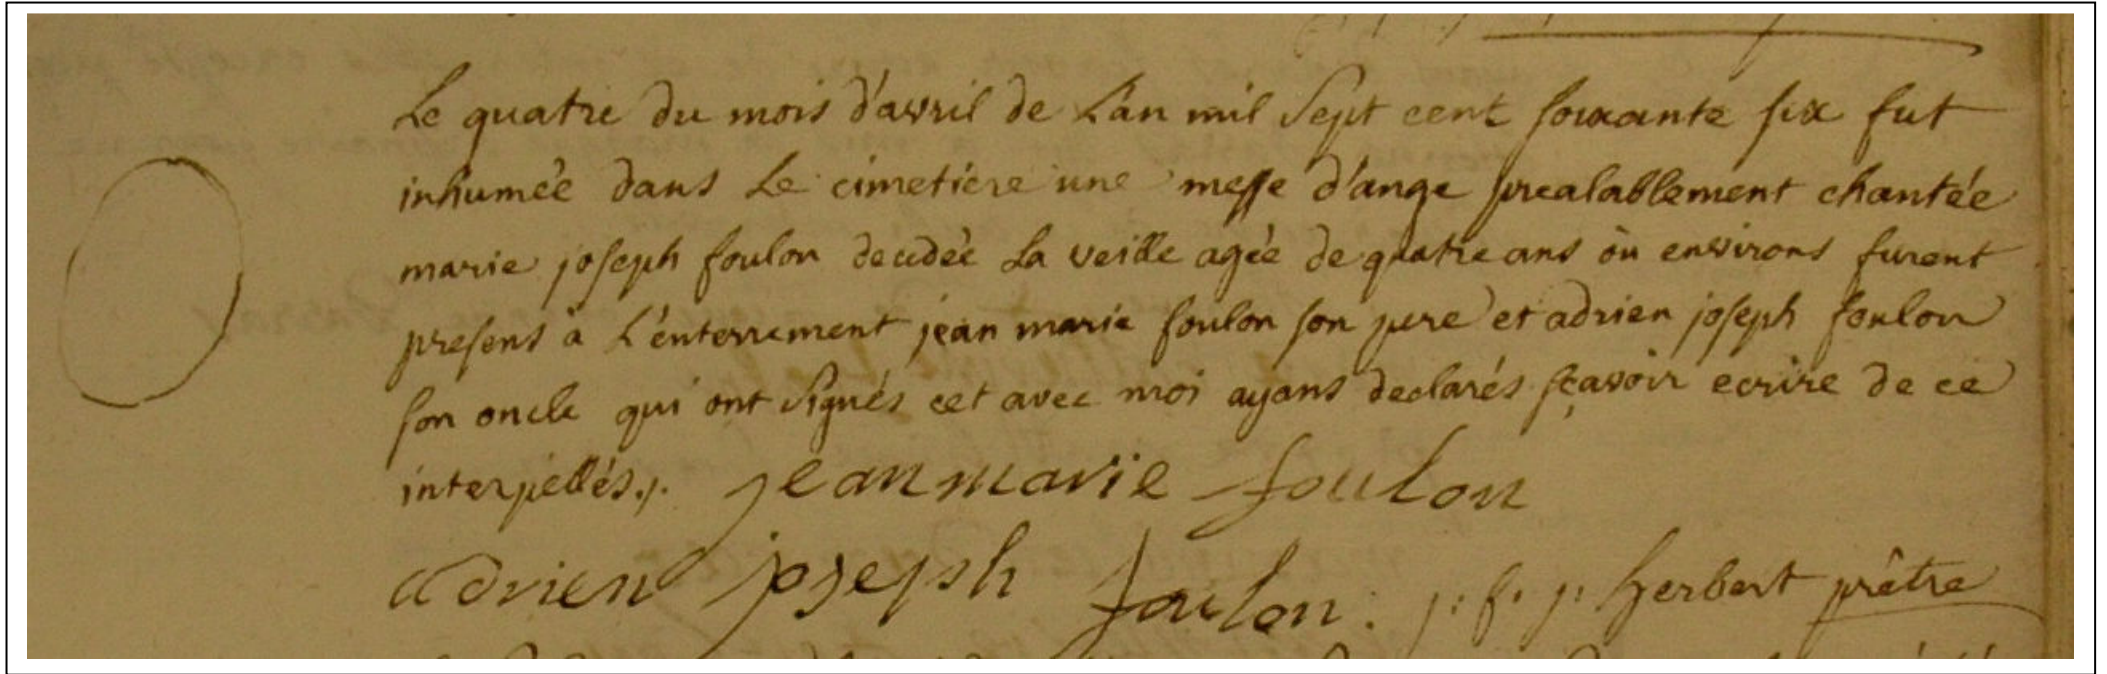 Le quatre du mois d'avril de L'an mil Sept cent soixante six fut
inhumée dans Le cimetiere une messe d'ange prealablement chantée
marie joseph foulon decedée La veille agée de quatre ans òu environs furent
presens à L'enterrement jean marie foulon son pere et adrien joseph foulon
son oncle qui ont signés cet avec moi ayans declarés sçavoir ecrire de ce
interpellés./. jean marie foulon
adrien joseph foulon. j: f. j: herbert prêtre